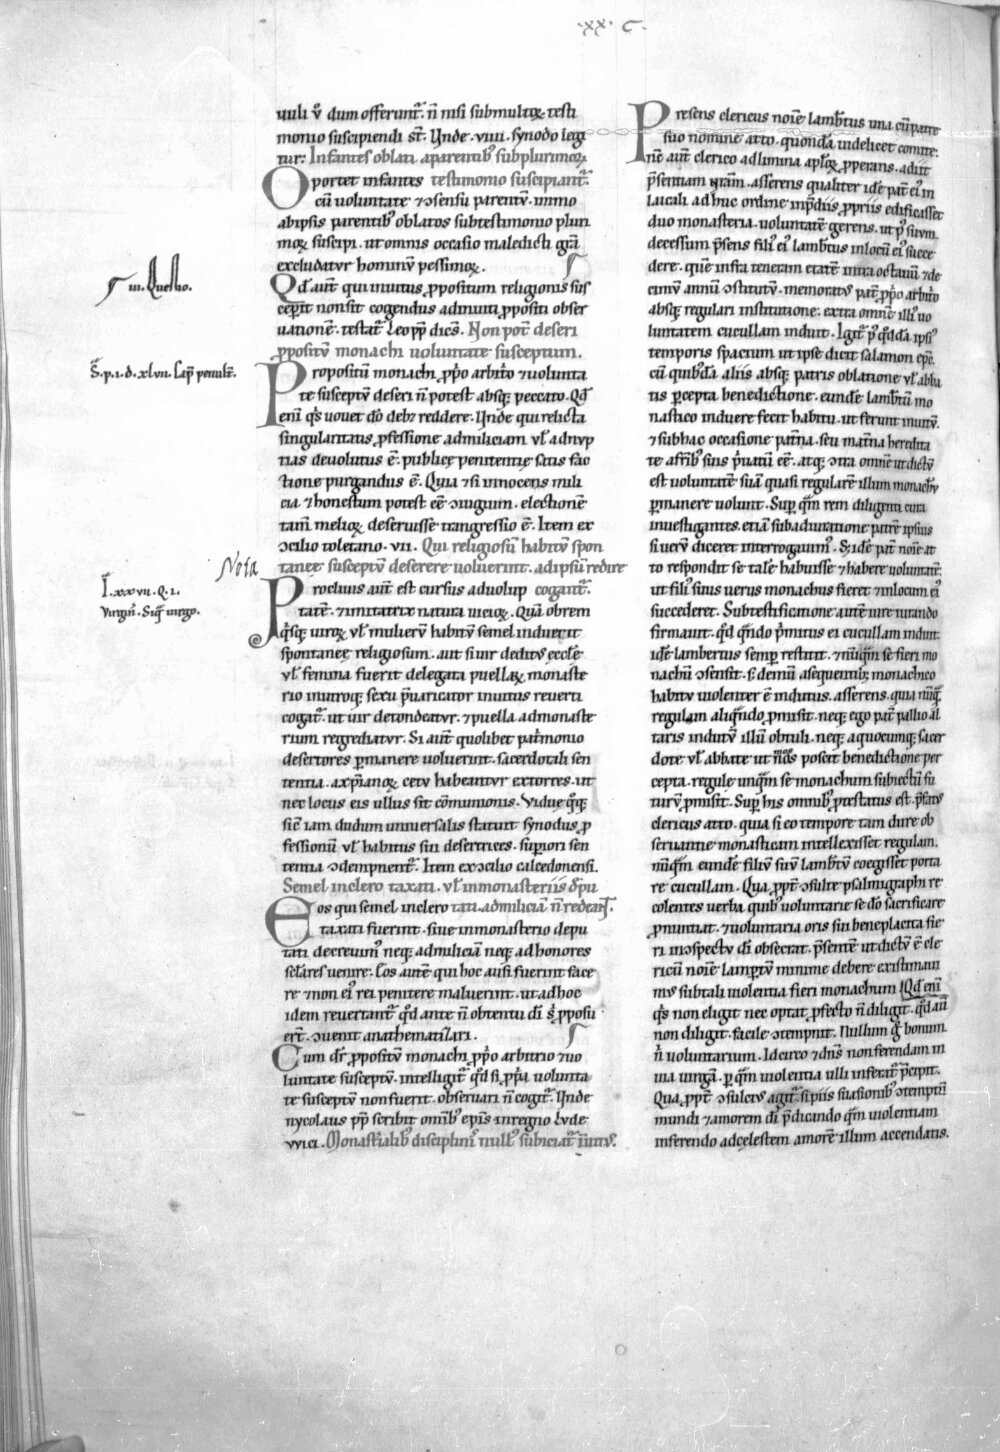 .xx. C.
uuli ṽ dum offerunt᷑. n̄ nisi submultoꝝ testi
monio suscipiendi sт̄. Unde .viiii. synodo leg̃
tur: Infantes oblati aparentibꝰ subplurimoꝝ
Oportet infantes testimonio suscipiant᷑.
cū uoluntate ⁊ ↄsensu parentū. immo
abipsis parentibꝰ oblatos subtestimonio pluri
moꝝ suscipi. ut omnis occasio maledicti gr̄a
excludatur hominū pessimoꝝ.
Qd̄ aut̄ qui inuitus ꝓpositum religionis sus
ceperit non sit cogendus admiti ꝓpositi obser
uationē. testat᷑ Leo pp̄ dicēs. Non pot̄ deseri
ꝓpositū monachi uoluntate susceptum.
iii. Questio.
Propositum monachi ꝓpͥo arbitͥo ⁊ uolunta
S̄. p. i. d. xlvii. cap̄ penult̄.
te susceptū deseri n̄ potest absqꝫ peccato. Qd̄
eni͞ qͥs uouet dō debꝫ reddere. Unde qui relicta
singularitatis ꝓfessione admiliciam uł adnup
tias deuolutus ē. publicę penitentię satis fac
tione purgandus ē. Quia ⁊ si innocens mili
cia ⁊ honestum potest eē ↄiugium. electionē
tam̄ melioꝝ deseruisse transgressio ē. Item ex
ↄcilio toletano .vii. Qui religiosū habitū spon
tanee susceptū deserere uoluerint. adipsū redire
Nota
Procliuis aut̄ est cursus aduolup cogant᷑.
I. xxvii. Q. i.
tatē. ⁊ imitatrix natura uicioꝝ. Quā obrem
Virgin̄. Siq̄ uirgo.
qͥsqꝫ uiroꝝ uł mulierū habitū semel induerit
spontaneę religiosum. aut si uir deditus ecclē
uł femina fuerit delegata puellaꝝ monaste
rio inutroqꝫ sexu p̄uaricator inuitus reuerti
cogat᷑. ut uir detondeatur. ⁊ puella admonaste
rium regrediatur. Si aut̄ quolibet pat̄monio
desertores ꝑmanere uoluerint. sacerdotali sen
tentia. axp̄ianoꝝ cetu habeantur extorres. ut
nec locus eis ullus sit cōmunionis. Viduę qͦqꝫ
sić iam dudum uniuersalis statuit synodus ꝓ
fessionū uł habitus sui desertrices. supiori sen
tentia ↄdempnent᷑. Item exↄcilio calcedonensi.
Semel inclero taxati. uł inmonasteriis dp̄u
Eos qui semel inclero tati. admiliciā n̄ redeant.
taxati fuerint. siue inmonasterio depu
tati decreuimꝰ neqꝫ admiliciā neqꝫ adhonores
sclares uenire. Eos autē qui hoc ausi fuerint face
re ⁊ non eiꝰ rei penitere maluerint. ut adhoc
idem reuertant᷑ qd̄ ante n̄ obtentu dī sͥ ꝓposu
ert̄. ↄuenit anathematizari.
Cum dr̄ ꝓpositū monachi ꝓpͥo arbitrio ⁊ uo
luntate susceptū. intelligit᷑ qd̄ si ꝓpͥa uolunta
te susceptū non fuerit. obseruari n̄ cogit᷑. Unde
nycolaus pp̄ scribit omībꝰ ep̄is inregno Lude
uuici. Monasт̄ialibꝰ disciplinis nullꝰ subiciat᷑ īuitus.
Presens clericus noīe lambt̄us una cū patre
suo nomine atto. quondā uidelicet comite.
nc̄ aut̄ clerico adlimina aplōꝝ ꝓperans. adiit
p̄sentiam nr̄am. asserens qualiter idē pat̄ eiꝰ in
laicali adhuc ordine inp̄diis ꝓpriis edificasset
duo monasteria. uoluntatē gerens. ut pꝰ suum
decessum p̄sens filiꝰ eiꝰ lambt̄us inlocū eiꝰ succe
dere. quē infra teneram etatē intra octauū ⁊ de
cimū annū ↄstitutū. memoratus pat̄ ꝓpͥo arbitͥo
absqꝫ regulari institutione. extra omnē illiꝰ uo
luntatem cucullam induit. Igit᷑ pꝰ qd̄dā ipsiꝰ
temporis spacium ut ipse dicit salamon ep̄c
cū quibꝰdā aliis absqꝫ patris oblatione uł abba
tis ꝑcepta benedictione. eundē lambt̄ū mo
nastico induere fecit habitu. ut ferunt inuitū.
⁊ subhac occasione pat̄na. seu mat̄na heredita
te affr̄ibꝰ suis pͥuatū eē. atqꝫ ↄtra omnē ut dictū
est uoluntatē suā quasi regularē illum monachū
ꝑmanere uolunt. Sup̱ qͣm rem diligenti cura
inuestigantes. etiā subadiuratione patrē ipsius
si uerū diceret interrogauimꝰ. S; idē pat̄ noīe at
to respondit se talē habuisse ⁊ habere uoluntatē.
ut filiꝰ suus uerus monachus fieret ⁊ inlocum eiꝰ
succederet. Subtestificatione autē iure iurando
firmauit. qd̄ qn̄do pͥmitus ei cucullam induit.
idē lambertus semp̱ restitit. ⁊ nūqͣm se fieri mo
nachū ↄsensit. Et demū asequentibꝫ monachico
habitu uiolenter ē indutus. asserens. quia nūqͣ
regulam aliqn̄do ꝓmisit. neqꝫ ego pat̄ pallio al
taris indutū illū obtuli. neqꝫ aquocumqꝫ sacer
dote uł abbate ut mōs poscit benedictione per
cepta. regule unqͣm se monachum subiectū fu
turū ꝓmisit. Sup̱ his omnibꝰ ꝓtestatus est p̄fatꝰ
clericus atto. quia si eo tempore tam dure ob
seruantie monasticam intellexisset regulam.
nūqͣm eundē filiū suū lambt̄ū coegisset porta
re cucullam. Qua ꝓpt̄ ↄsulte psalmigraphi re
colentes uerba quibꝰ uoluntarie se dō sacrificare
ꝓnuntiat. ⁊ uoluntaria oris sui beneplacita fie
ri inↄspectu dī obsecrat. p̄sentē ut dictū ē cle
ricū noīe lamp̱tū minime debere existimaui
mus subtali uiolentia fieri monachum. Qd̄ eni͞
qͥs non eligit nec optat ꝓfecto n̄ diligit. qd̄ aut̄
non diligit. facile ↄtempnit. Nullum gͦ bonum
nͥ uoluntarium. Idcirco ⁊ dn̄s non ferendam in
uia uirgā. ꝑ qͣm uiolentia ulli inferat᷑ p̄cipit.
Qua ꝓpt̄ ↄsulers agit᷑ si piis suasionibꝰ ↄtemptū
mundi ⁊ amorem dī p̄dicando qͣm uiolentiam
inferendo adcęlestem amorē illum accendatis.